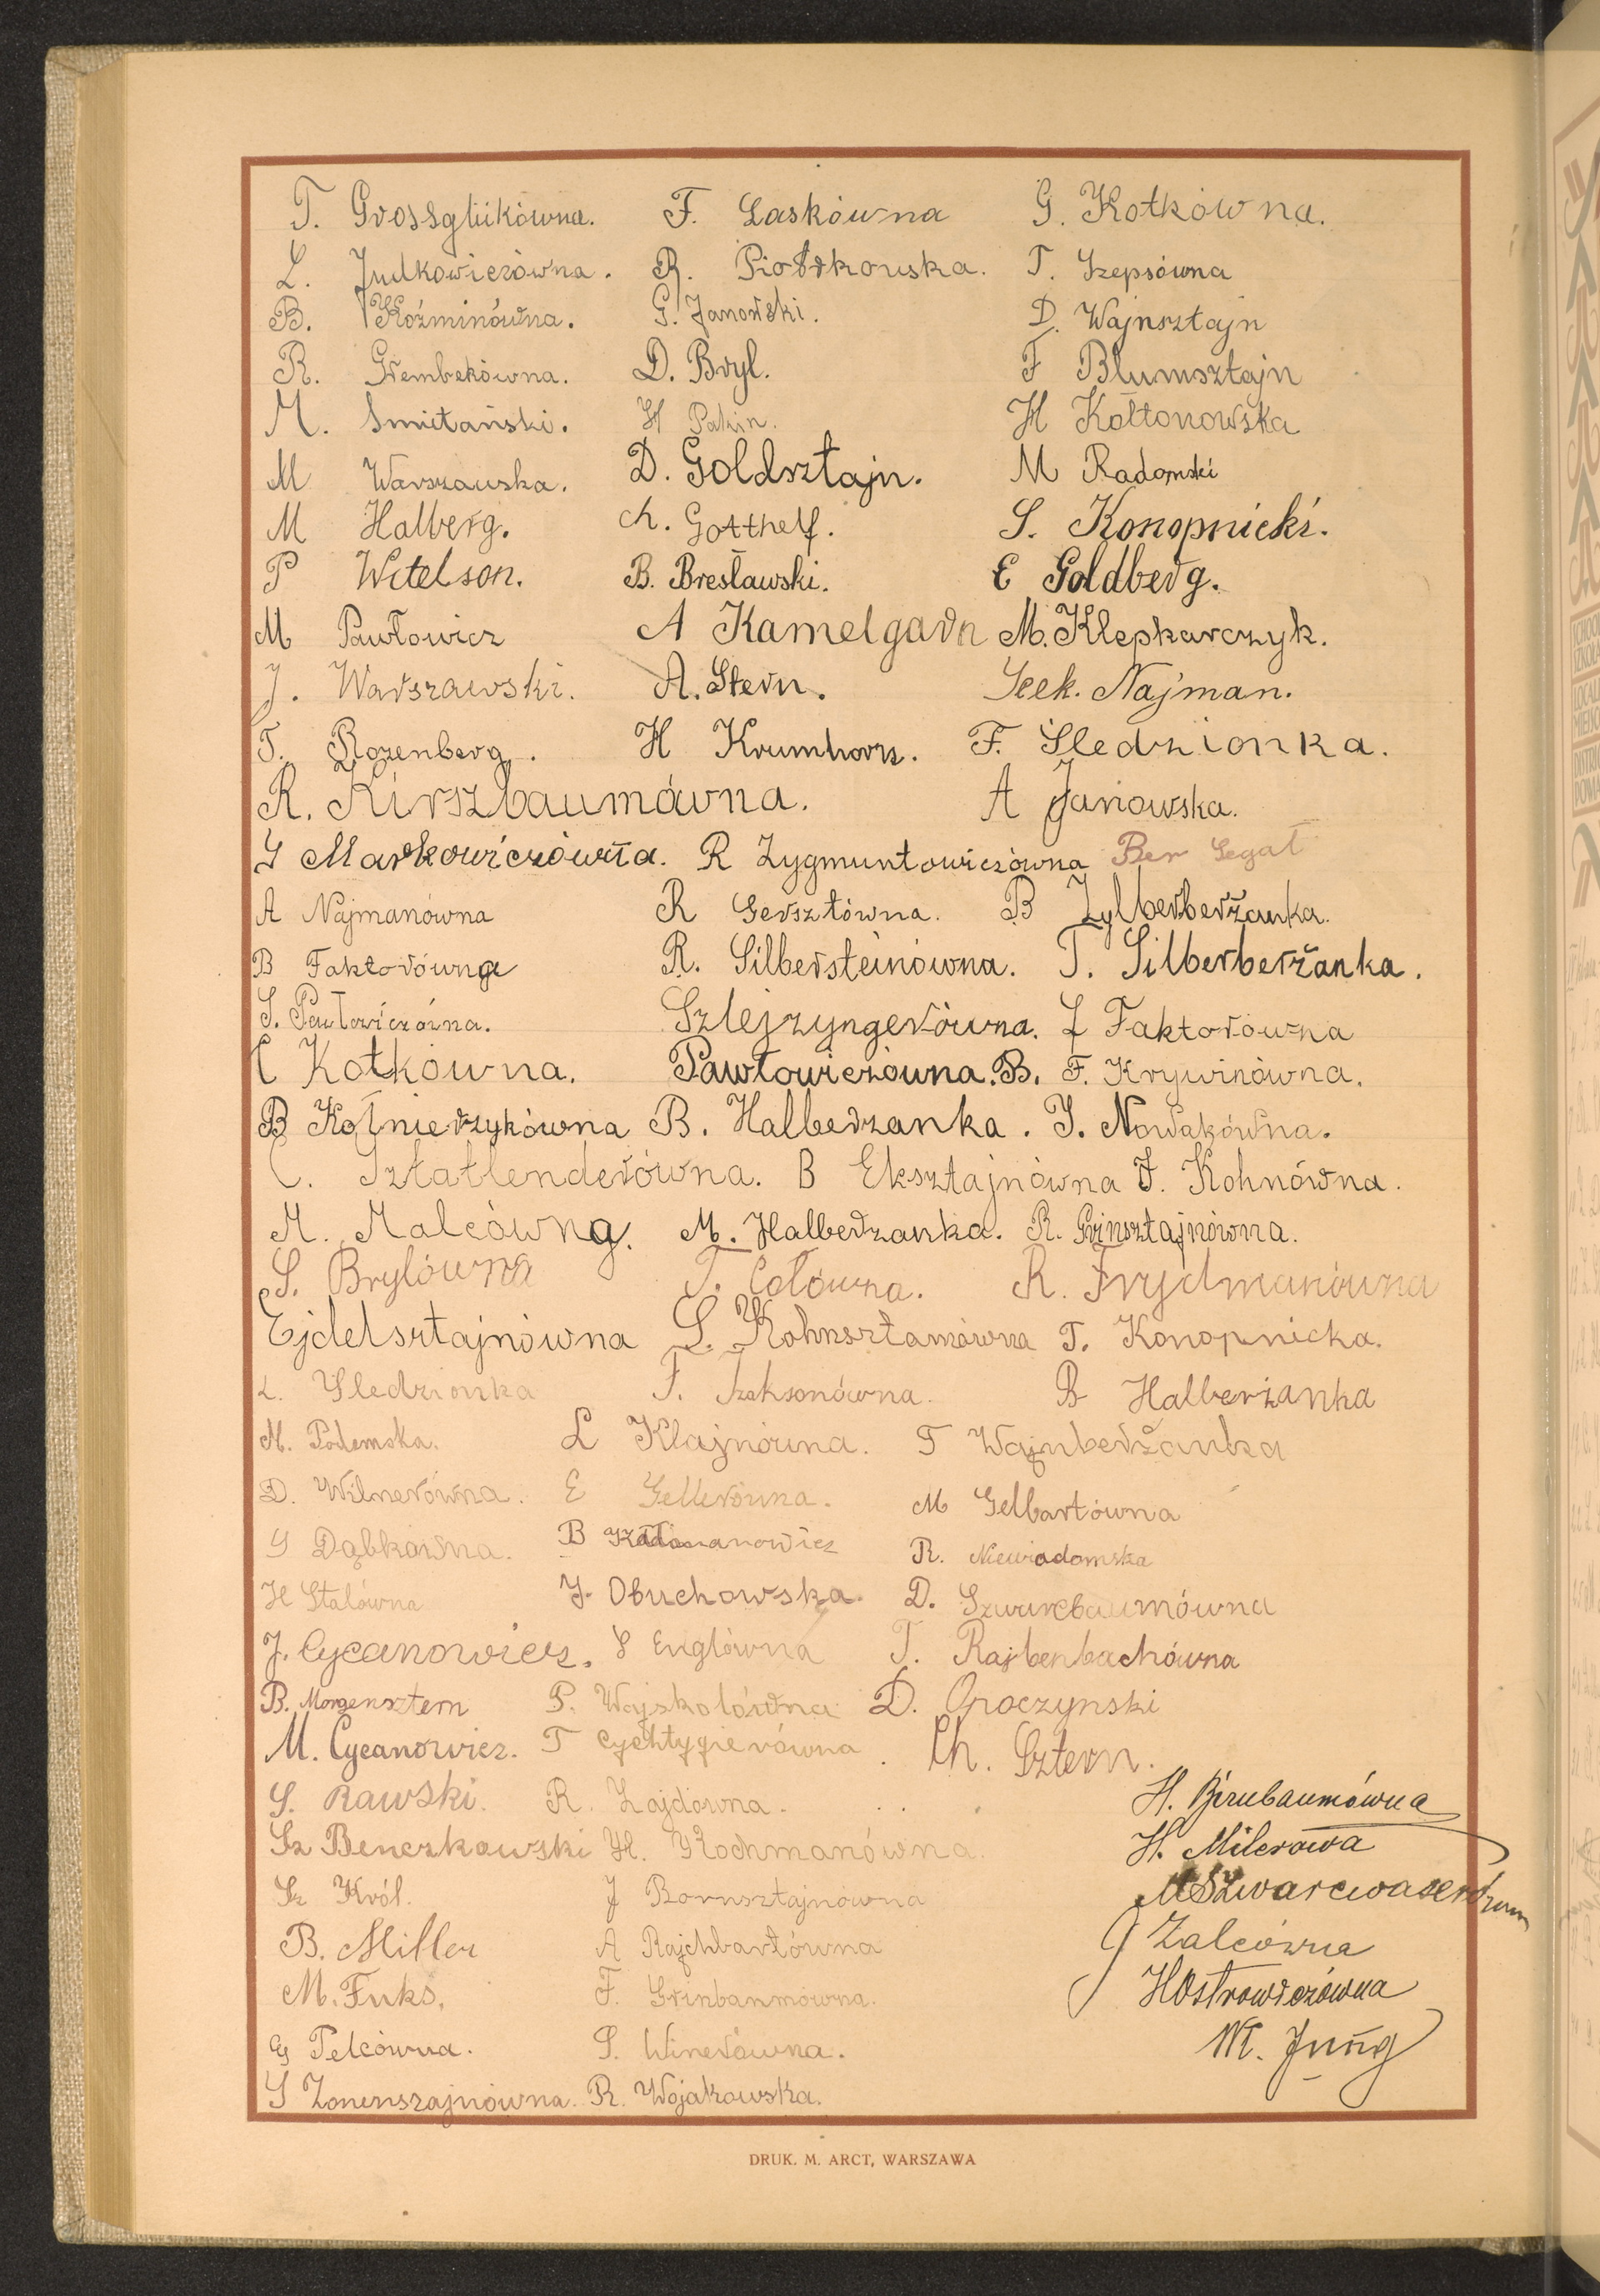 T. Grossglikówna. F. Laskówna G. Kotkówna.
L. Judkowiczówna. R. Piotrkowska. T. Szepsówna
B. Koźminówna. G. Janowski. D. Wajnsztajn
R. Grembekówna. D. Bryl. F Blumsztajn
M. Smietański. H Pakin. H Kołtonowska
M Warszawska. D. Goldsztajn. M Radomski
M Halberg. Ch. Gotthelf. S. Konopnicki.
P Witelson. B. Bresławski. E Goldberg.
M Pawłowicz A Kamelgarn M. Klepkarczyk.
J. Warszawski. A. Stern. Icek. Najman.
T. Rozenberg. H Krumhorz. F. Sledzionka.
R. Kirszbaumówna. A Janowska.
G Markowiczówna. R Zygmuntowiczówna Ber Segał
A Najmanówna R Gersztówna. B Zylberberżanka.
B Faktorówna R. Silbersteinówna. T. Silberberżanka.
S. Pawłowiczówna. Szlejzyngerówna. L Faktorówna
C Kotkówna. Pawłowiczówna. B. F. Krywinówna.
B Kołnierzykówna B. Halberzanka. I. Nowakówna.
C. Sztatlenderówna. B Eksztajnówna F. Kohnówna.
M. Malcówna. M. Halberzanka. R. Grinsztajnówna.
S. Brylówna T. Cołówna. R. Frydmanówna
Ejdelsztajnówna S. Kohnsztamówna T. Konopnicka.
L. Sledzionka F. Izaksonówna. B Halberżanka
M. Podemska. L Klajnówna. T Wajnberżanka
D. Wilnerówna. E Gellerówna. M Gelbartówna
G Dąbkówna. B R. Niewiadomska
H Stalówna J. Obuchowska. D. Szwarcbaumówna
J. Cycanowicz. S Englówna T. Rajbenbachówna
B. Morgensztern P. Wajskolówna D. Opoczynski
M. Cycanowicz. T Cychtygierówna. Ch. Sztern.
S. Rawski. R. Zajdówna. H. Birnbaumówna
Sz Benczkowski H. Włochmanówna. H. Milerowa
Sz Król. J Bornsztajnówna M Szwarcwasertzum
B. Miller A Rajchbartówna J Zalcówna
M. Fuks. F. Grinbaumówna. H Ostrowiczówna
G Pelcówna. S. Winerówna. M. Jung
S Zonenszajnówna. R. Wojakowska.
DRUK. M. ARCT, WARSZAWA